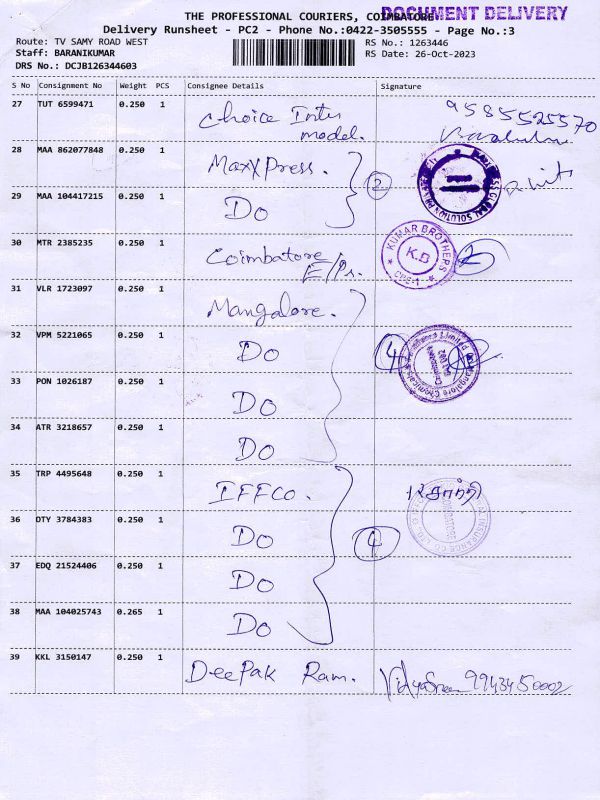 THE PROFESSIONAL COURIERS, COIMBATORE
DOCUMENT DELIVERY
Delivery Runsheet - PC2 - Phone No.:0422-3505555 - Page No.:3
Route: TV SAMY ROAD WEST
RS No.: 1263446
Staff: BARANIKUMAR
RS Date: 26-Oct-2023
DRS No.: DCJB126344603
S No Consignment No Weight PCS Consignee Details Signature
27 TUT 6599471 0.250 1 Choice Inter 9585525570
model.
28 MAA 862077848 0.250 1 MaxxPress. 2
29 MAA 104417215 0.250 1 Do
30 MTR 2385235 0.250 1 Coimbatore KUMAR BROTHERS
E/Ps. K.B
CBE-1
31 VLR 1723097 0.250 1 Mangalore.
32 VPM 5221065 0.250 1 Do 4 Mangalore Chemicals
Coimbatore
33 PON 1026187 0.250 1 Do
34 ATR 3218657 0.250 1 Do
35 TRP 4495648 0.250 1 IFFCO.
36 DTY 3784383 0.250 1 Do 4 INSURANCE CO LTD
COIMBATORE
37 EDQ 21524406 0.250 1 Do
38 MAA 104025743 0.265 1 Do
39 KKL 3150147 0.250 1 DeePak Ram. 9943450002